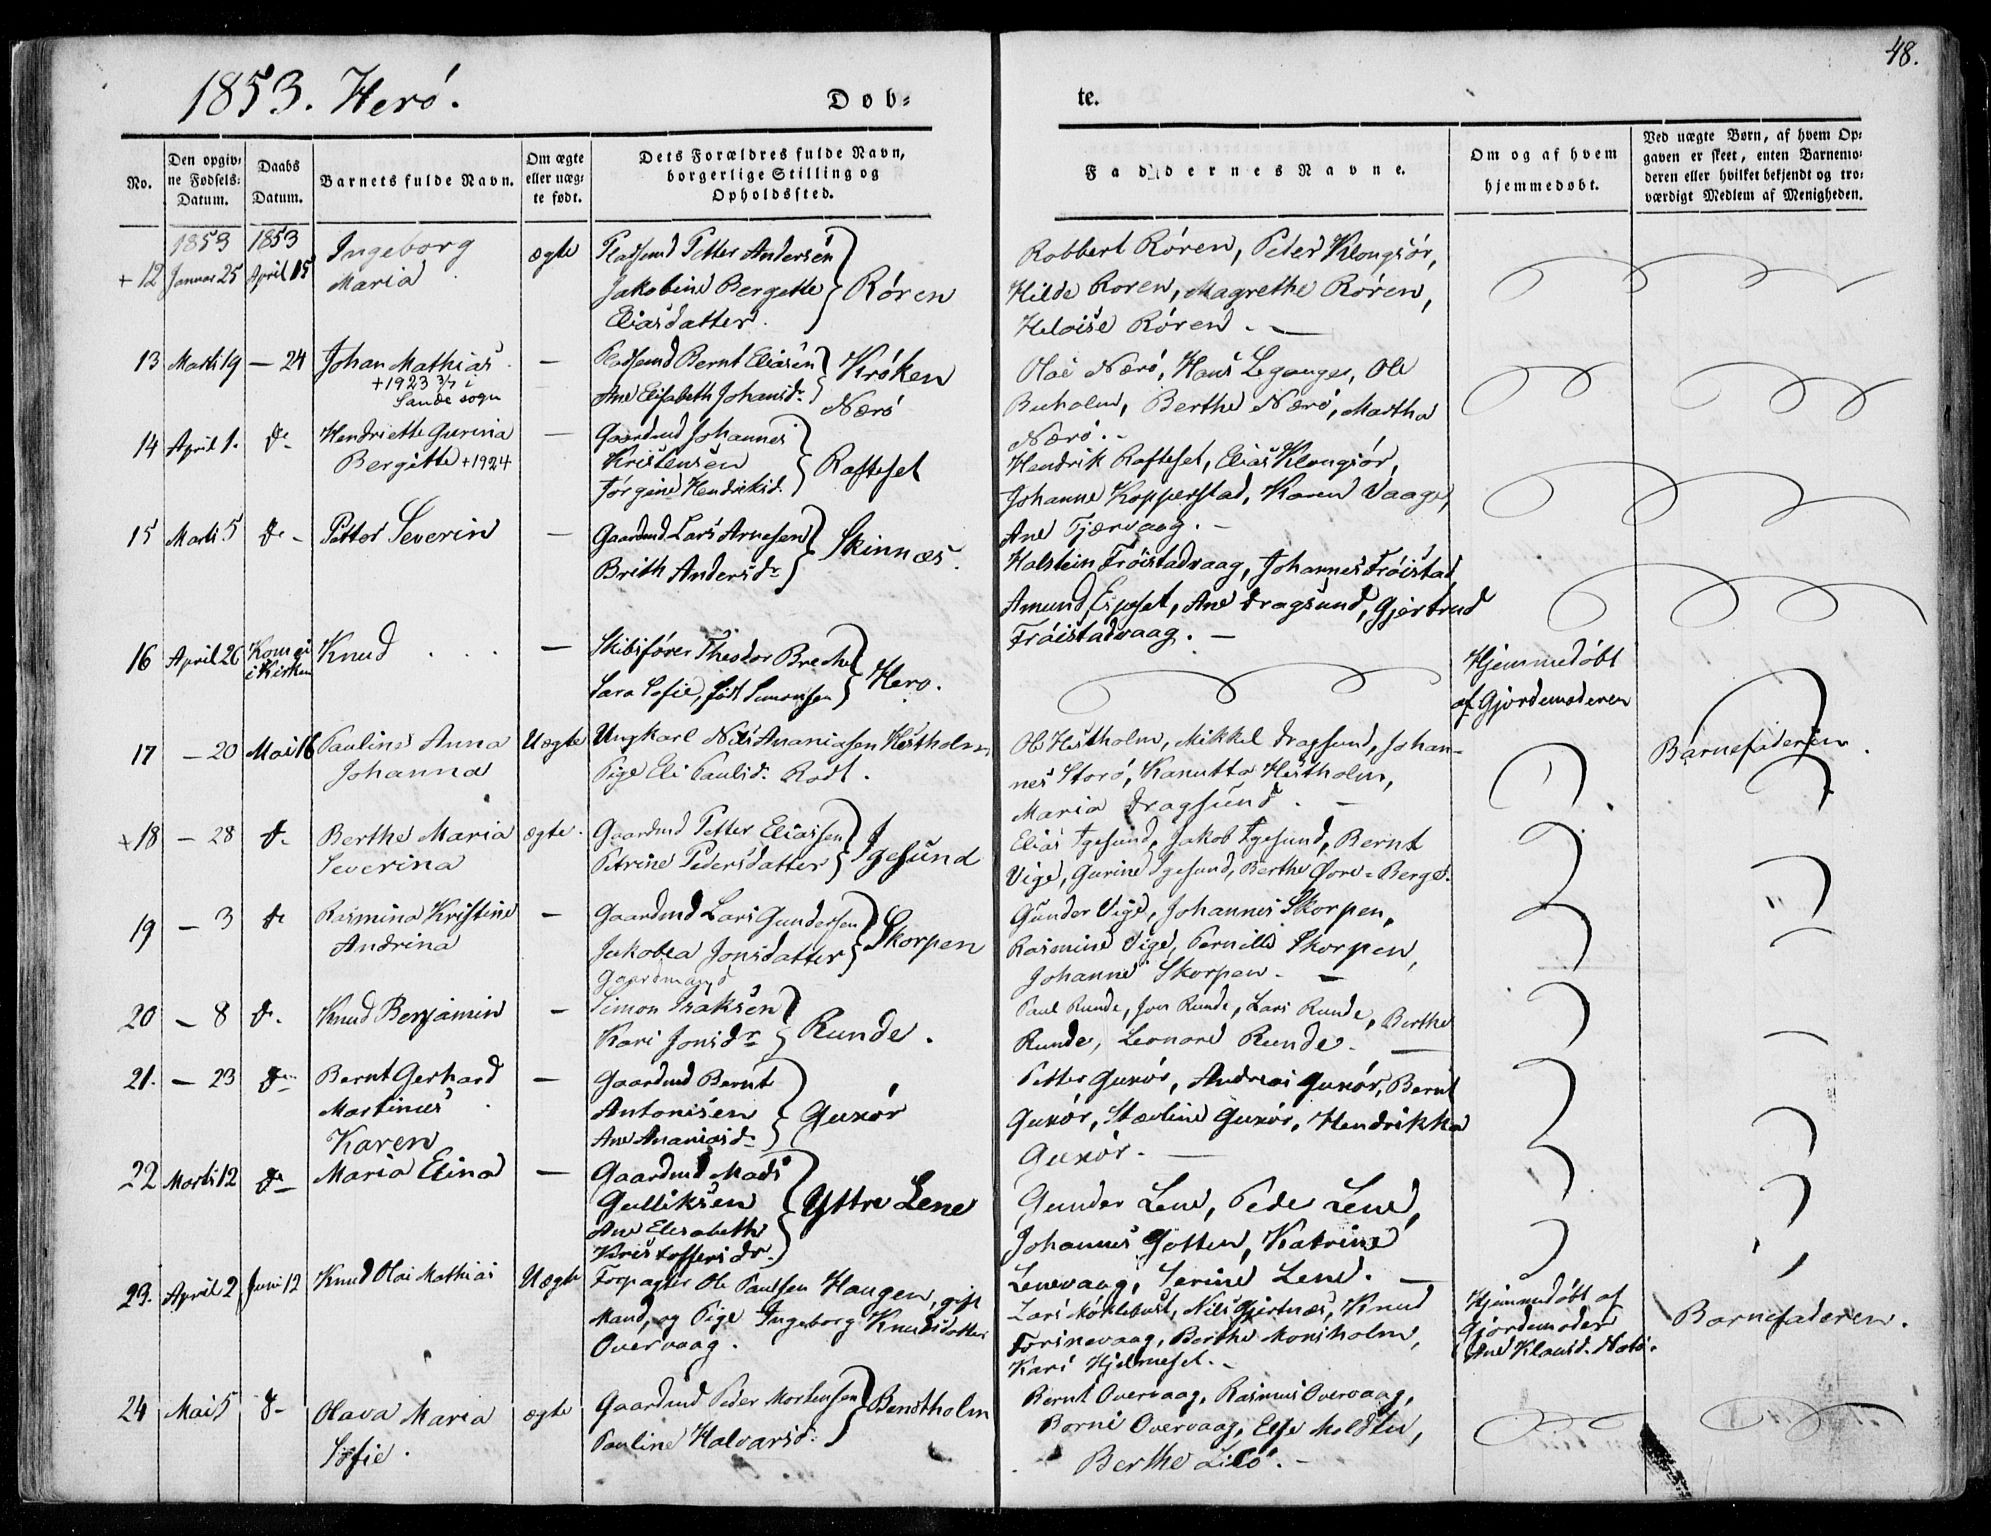 48.
1853. Herø.
Døb-
te.
No.
Den opgiv-
ne Fødsels-
Datum.
Daabs
Datum.
Barnets fulde Navn.
Om ægte
eller uæg-
te født.
Dets Forældres fulde Navn,
borgerlige Stilling og
Opholdssted.
Faddernes Navne.
Om og af hvem
hjemmedøbt.
Ved uægte Børn, af hvem Op-
gaven er skeet, enten Barnemo-
deren eller hvilket bekjendt og tro-
værdigt Medlem af Menigheden.
1853 1853
+ 12 Januar 25 April 15 Ingeborg
Maria
ægte Pladsmd Petter Andersen
Jakobine Bergette
Eliasdatter.
Røren
Robbert Røren, Peter Klongsør,
Hilde Roren, Magrethe Røren,
Heloise Røren. —
13 Marti 19 — 24 Johan Mathias
+ 1923 3/7 i
Sande sogn
— Pladsmd Bernt Eliasen
Ane Elisabeth Johansdr
Krøken
Nærø
Olai Nærø, Hans Leganger, Ole
Buholm, Berthe Nærø, Martha
Nærø. -
14 April 1. do Hendriette Gurina
Bergitte +1924
— Gaardmd Johannes
Kristensen
Jørgine Hendriksd.
Rafteset
Hendrik Rafteset, Elias Klongsør,
Johanne Kopperstad, Karen Vaage,
Ane Tjærvaag. -
15 Marti 5 do - Petter Severin
— Gaardmd Lars Arnesen
Brith Andersdr
Skinnæs.
Halstein Frøistadvaag, Johannes Frøistad,
Amund Espeset, Ane Dragsund, Gjertrud
Frøistadvaag. —
16 April 26 Kom ei
i Kirken
Knud . . . — Skibsfører Theodor Brechel
Sara Sofie, født Simonsen
Herø.
Hjemmedøbt
af Gjordemoderen
17 — 20 Mai 16 Pauline Anna
Johanna
Uægte Ungkarl Nils Ananiasen Hestholm
Pige Eli Paulsd. Rodt.
Ole Hestholm, Mikkel Dragsund, Johan-
nes Storø, Kanutta Hestholm,
Maria Dragsund. —
Barnefaderen.
+18 — 28 do Berthe Maria
Severina
ægte. Gaardmd Petter Eliassen
Petrine Pedersdatter
Igesund
Elias Igesund, Jakob Igesund, Bernt
Vige, Gurine Igesund, Berthe Øvre-Berge.
19 — 3 do Rasmina Kristine
Andrina
— Gaardmd Lars Gundersen
Jakobea Jonsdatter
Skorpen
Gunder Vige, Johannes Skorpen,
Rasmine Vige, Pernille Skorpen,
Johanne Skorpen. —
20 — 8 do. Knud Benjamin
— Gaardmand
Simon Isaksen
Kari Jonsdr
Runde.
Paul Runde, Iver Runde, Lars Runde, Berthe
Runde, Leonard Runde. —
21. — 23 do Bernt Gerhard
Martinus
— Gaardmd Bernt
Antonisen
Ane Ananiasd.
Guxør
Petter Guxør, Andreas Guxør, Bernt
Guxør, Stævline Guxør, Hendrikka
Guxør. —
22 Marti 12 do Karen
Maria Elina
— Gaardmd Mads
Gulliksen
Ane Elisabeth
Kristoffersdr.
Yttre Lene
Gunder Lene, Peder Lene,
Johannes Gotten, Katrine
Lenevaag, Serine Lene. —
23. April 2 Juni 12 Knud Olai Mathias
Uægte Forpagter Ole Paulsen Haugen, gift
Mand, og Pige Ingeborg Knudsdatter
Overvaag.
Lars Møklebust, Nils Gjertnæs, Knud
Torinevaag, Berthe Monsholm,
Kari Hjelmeset. -
Hjemmedøbt af
Gjordemoder
Ane Klausd. Notø.
Barnefaderen.
24 Mai 5 do Olava Maria
Sofie.
ægte Gaardmd Peder Mortensen
Pauline Halvarsd.
Bendtholm
Bernt Overvaag, Rasmus Overvaag,
Borni Overvaag, Else Moldtu,
Berthe Lisø. -